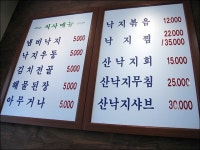 식사메뉴
냄비낙지 5,000
낙지우동 5,000
김치전골 5,000
해물된장 5,000
아무거나 5,000
낙지볶음 12,000
낙지찜 22,000
35,000
산낙지회 15,000
산낙지무침 25,000
산낙지샤브 30,000